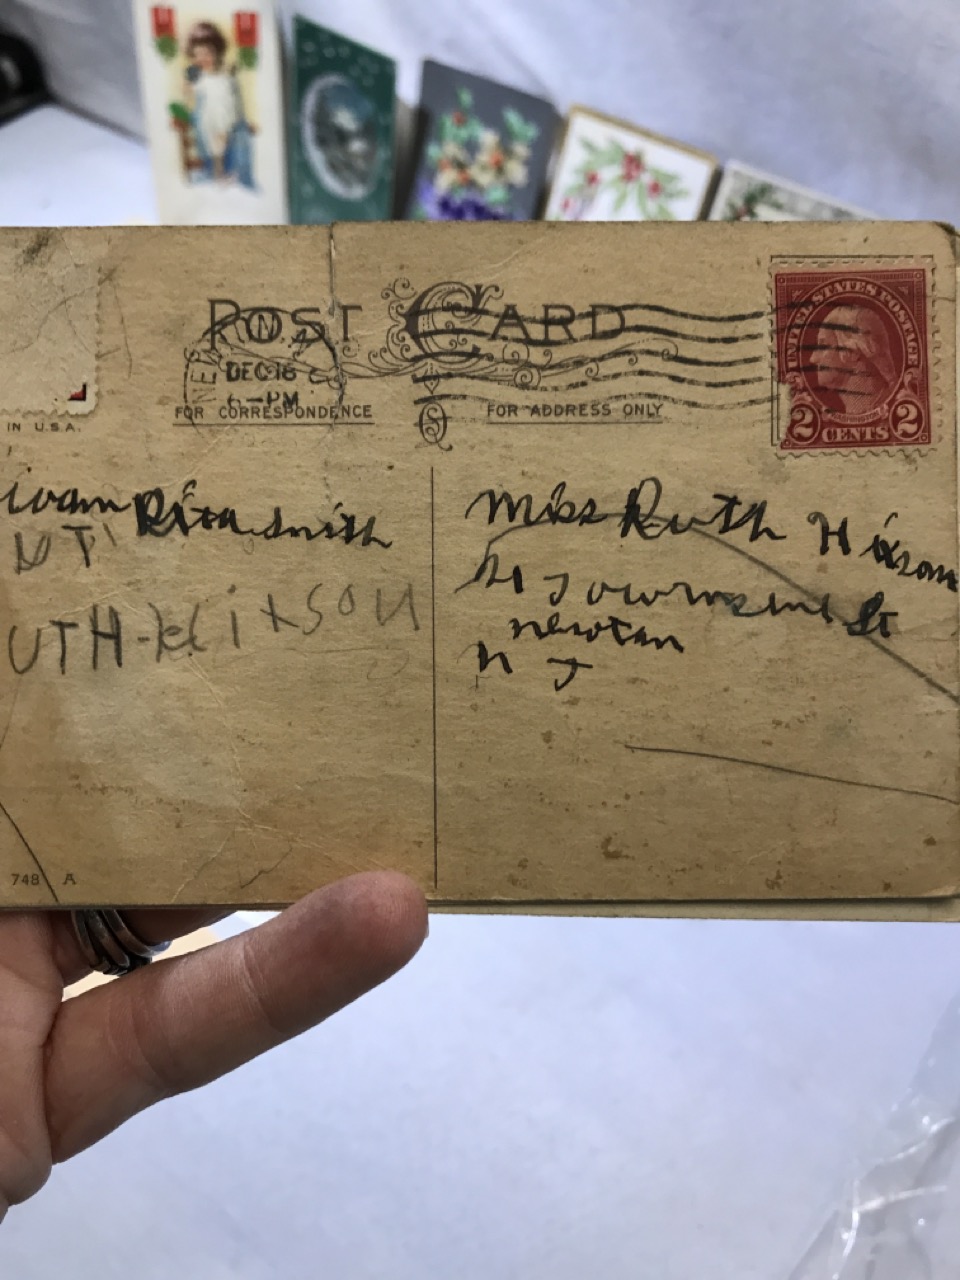 POST CARD
NEW
DEC 18
6-PM
FOR CORRESPONDENCE
FOR ADDRESS ONLY
UNITED STATES POSTAGE
2 CENTS 2
IN U.S.A.
Rita Smith
Miss Ruth Hixson
Townsend St
Newton
N J
UTH-HitsoN
748 A